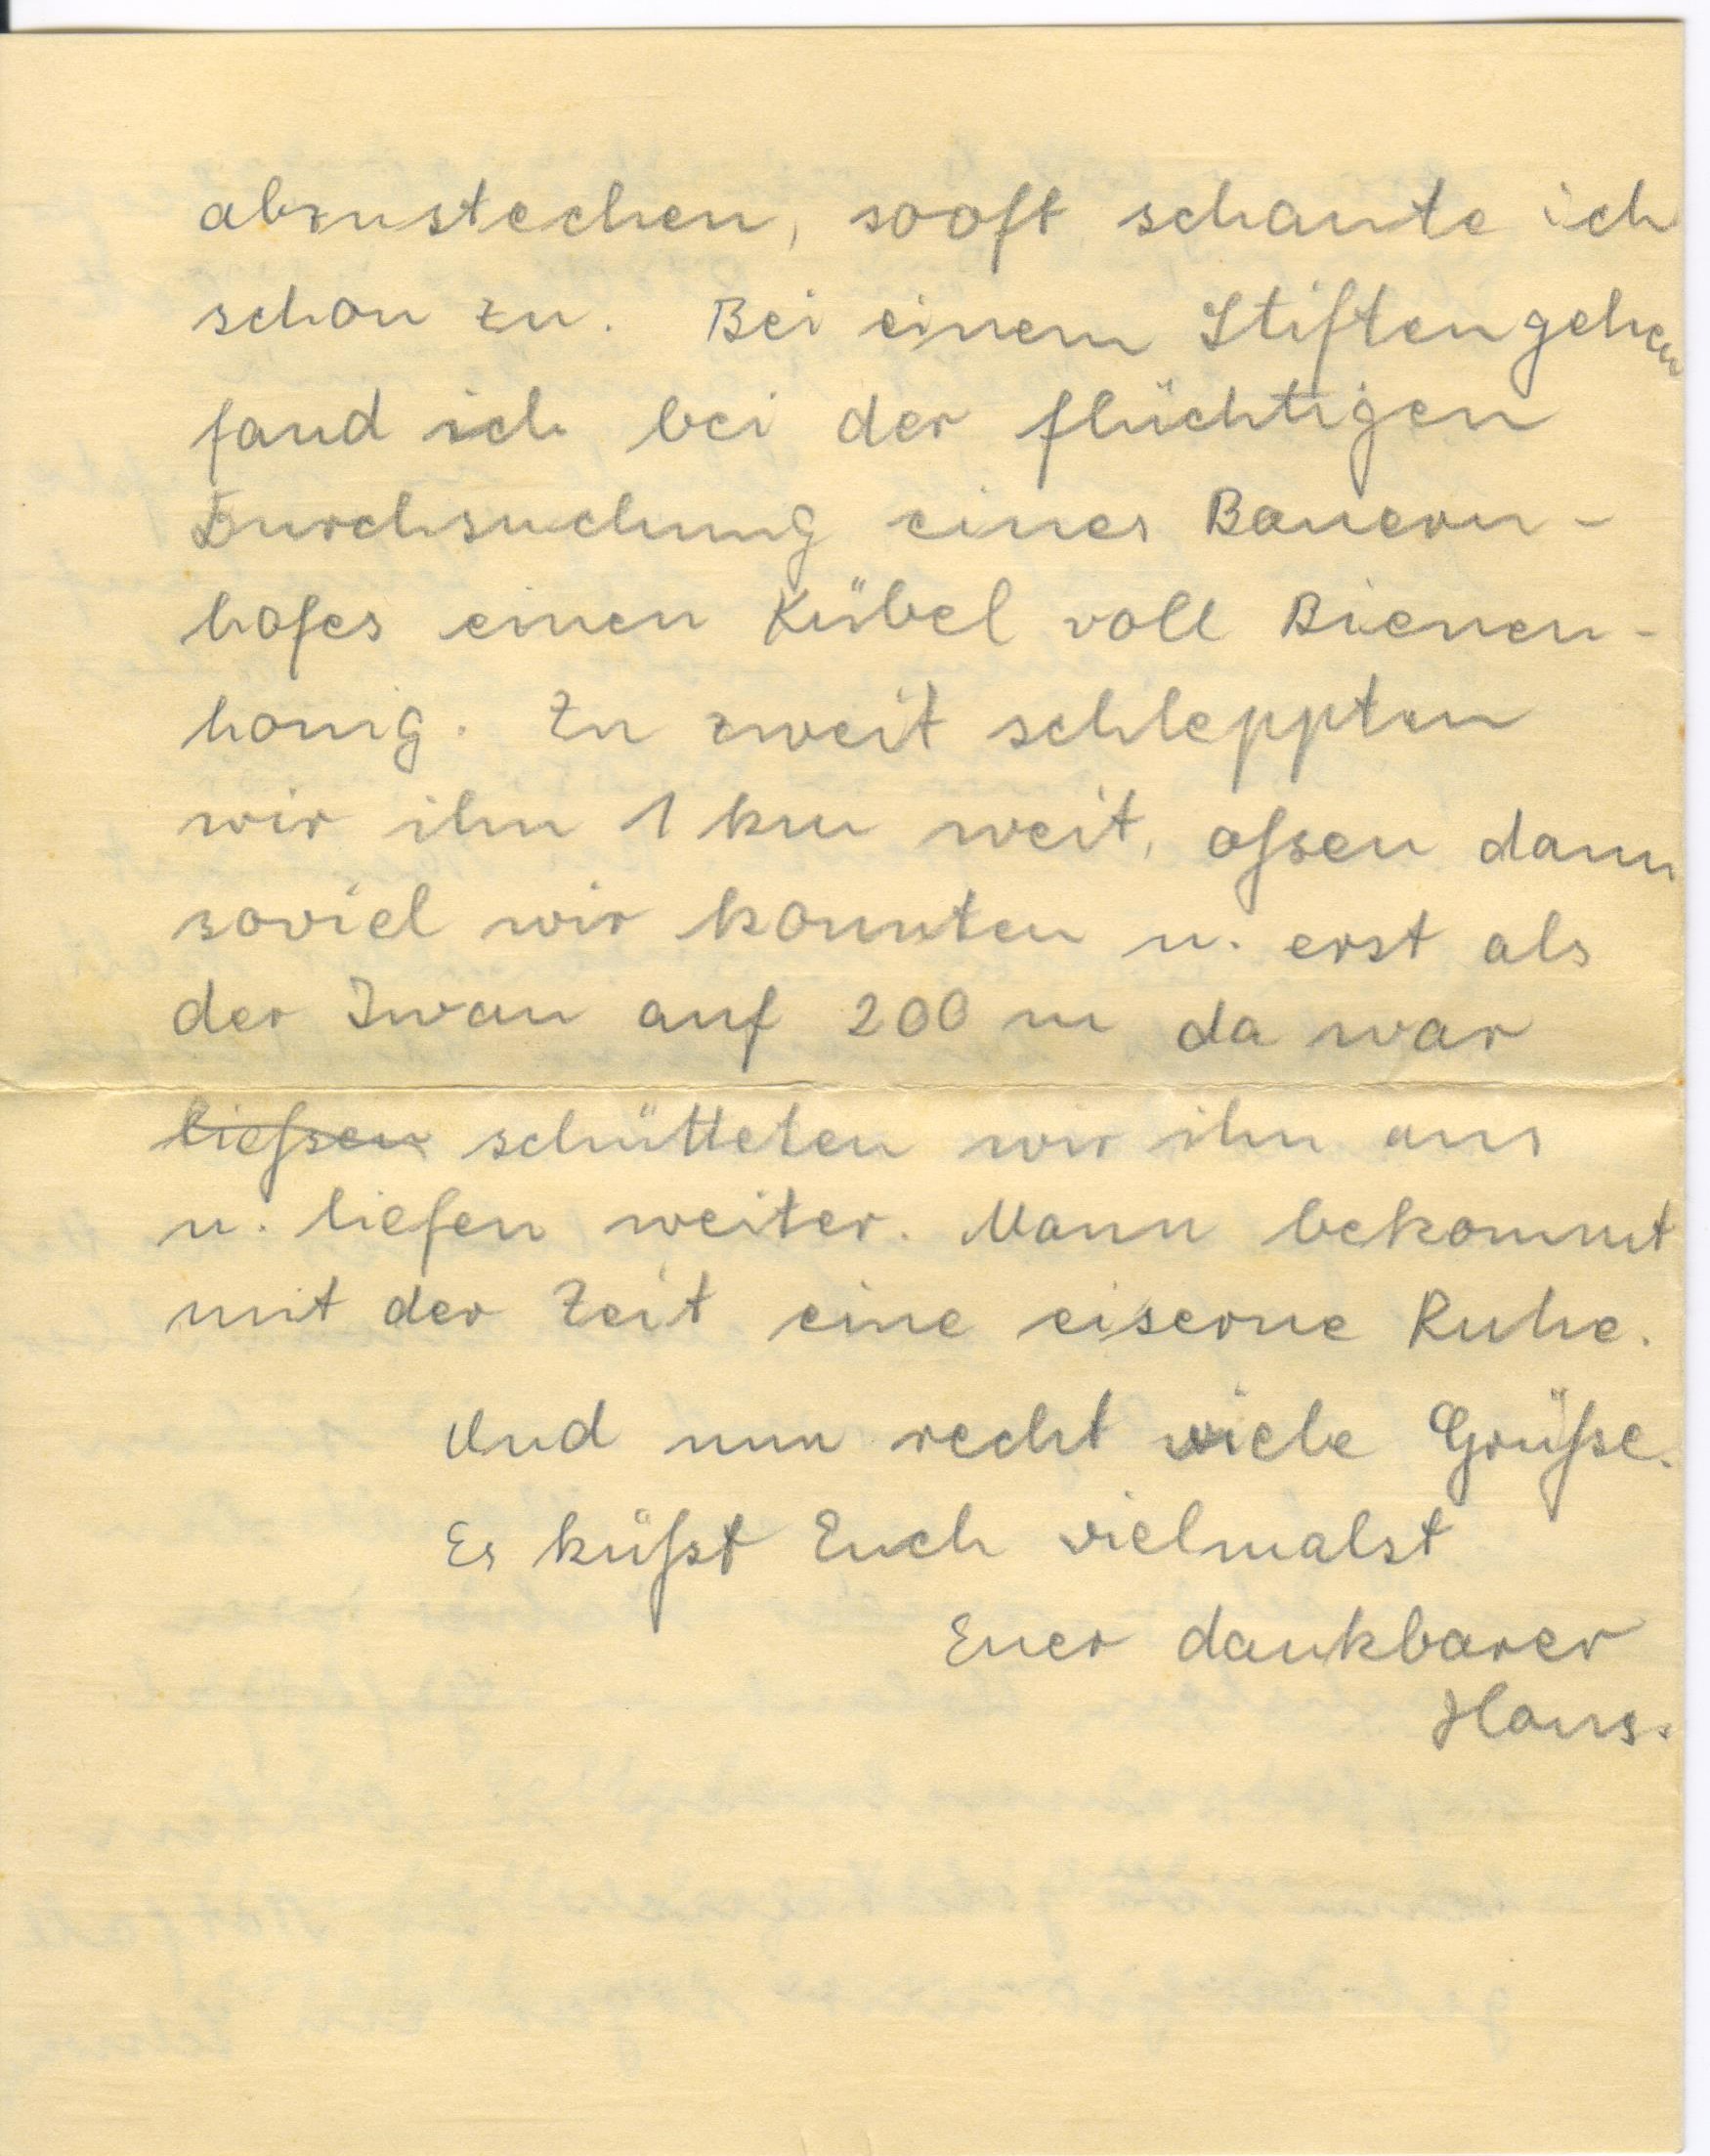 abzustechen, sooft schaute ich
schon zu. Bei einem Stiftengehen
fand ich bei der flüchtigen
Durchsuchung eines Bauern-
hofes einen Kübel voll Bienen-
honig. Zu zweit schleppten
wir ihn 1 km weit, assen dann
soviel wir konnten u. erst als
der Iwan auf 200 m da war
liessen schütteten wir ihn aus
u. liefen weiter. Mann bekommt
mit der Zeit eine eiserne Ruhe.
Und nun recht viele Grüße.
Es küßt Euch vielmalst
Euer dankbarer
Hans.